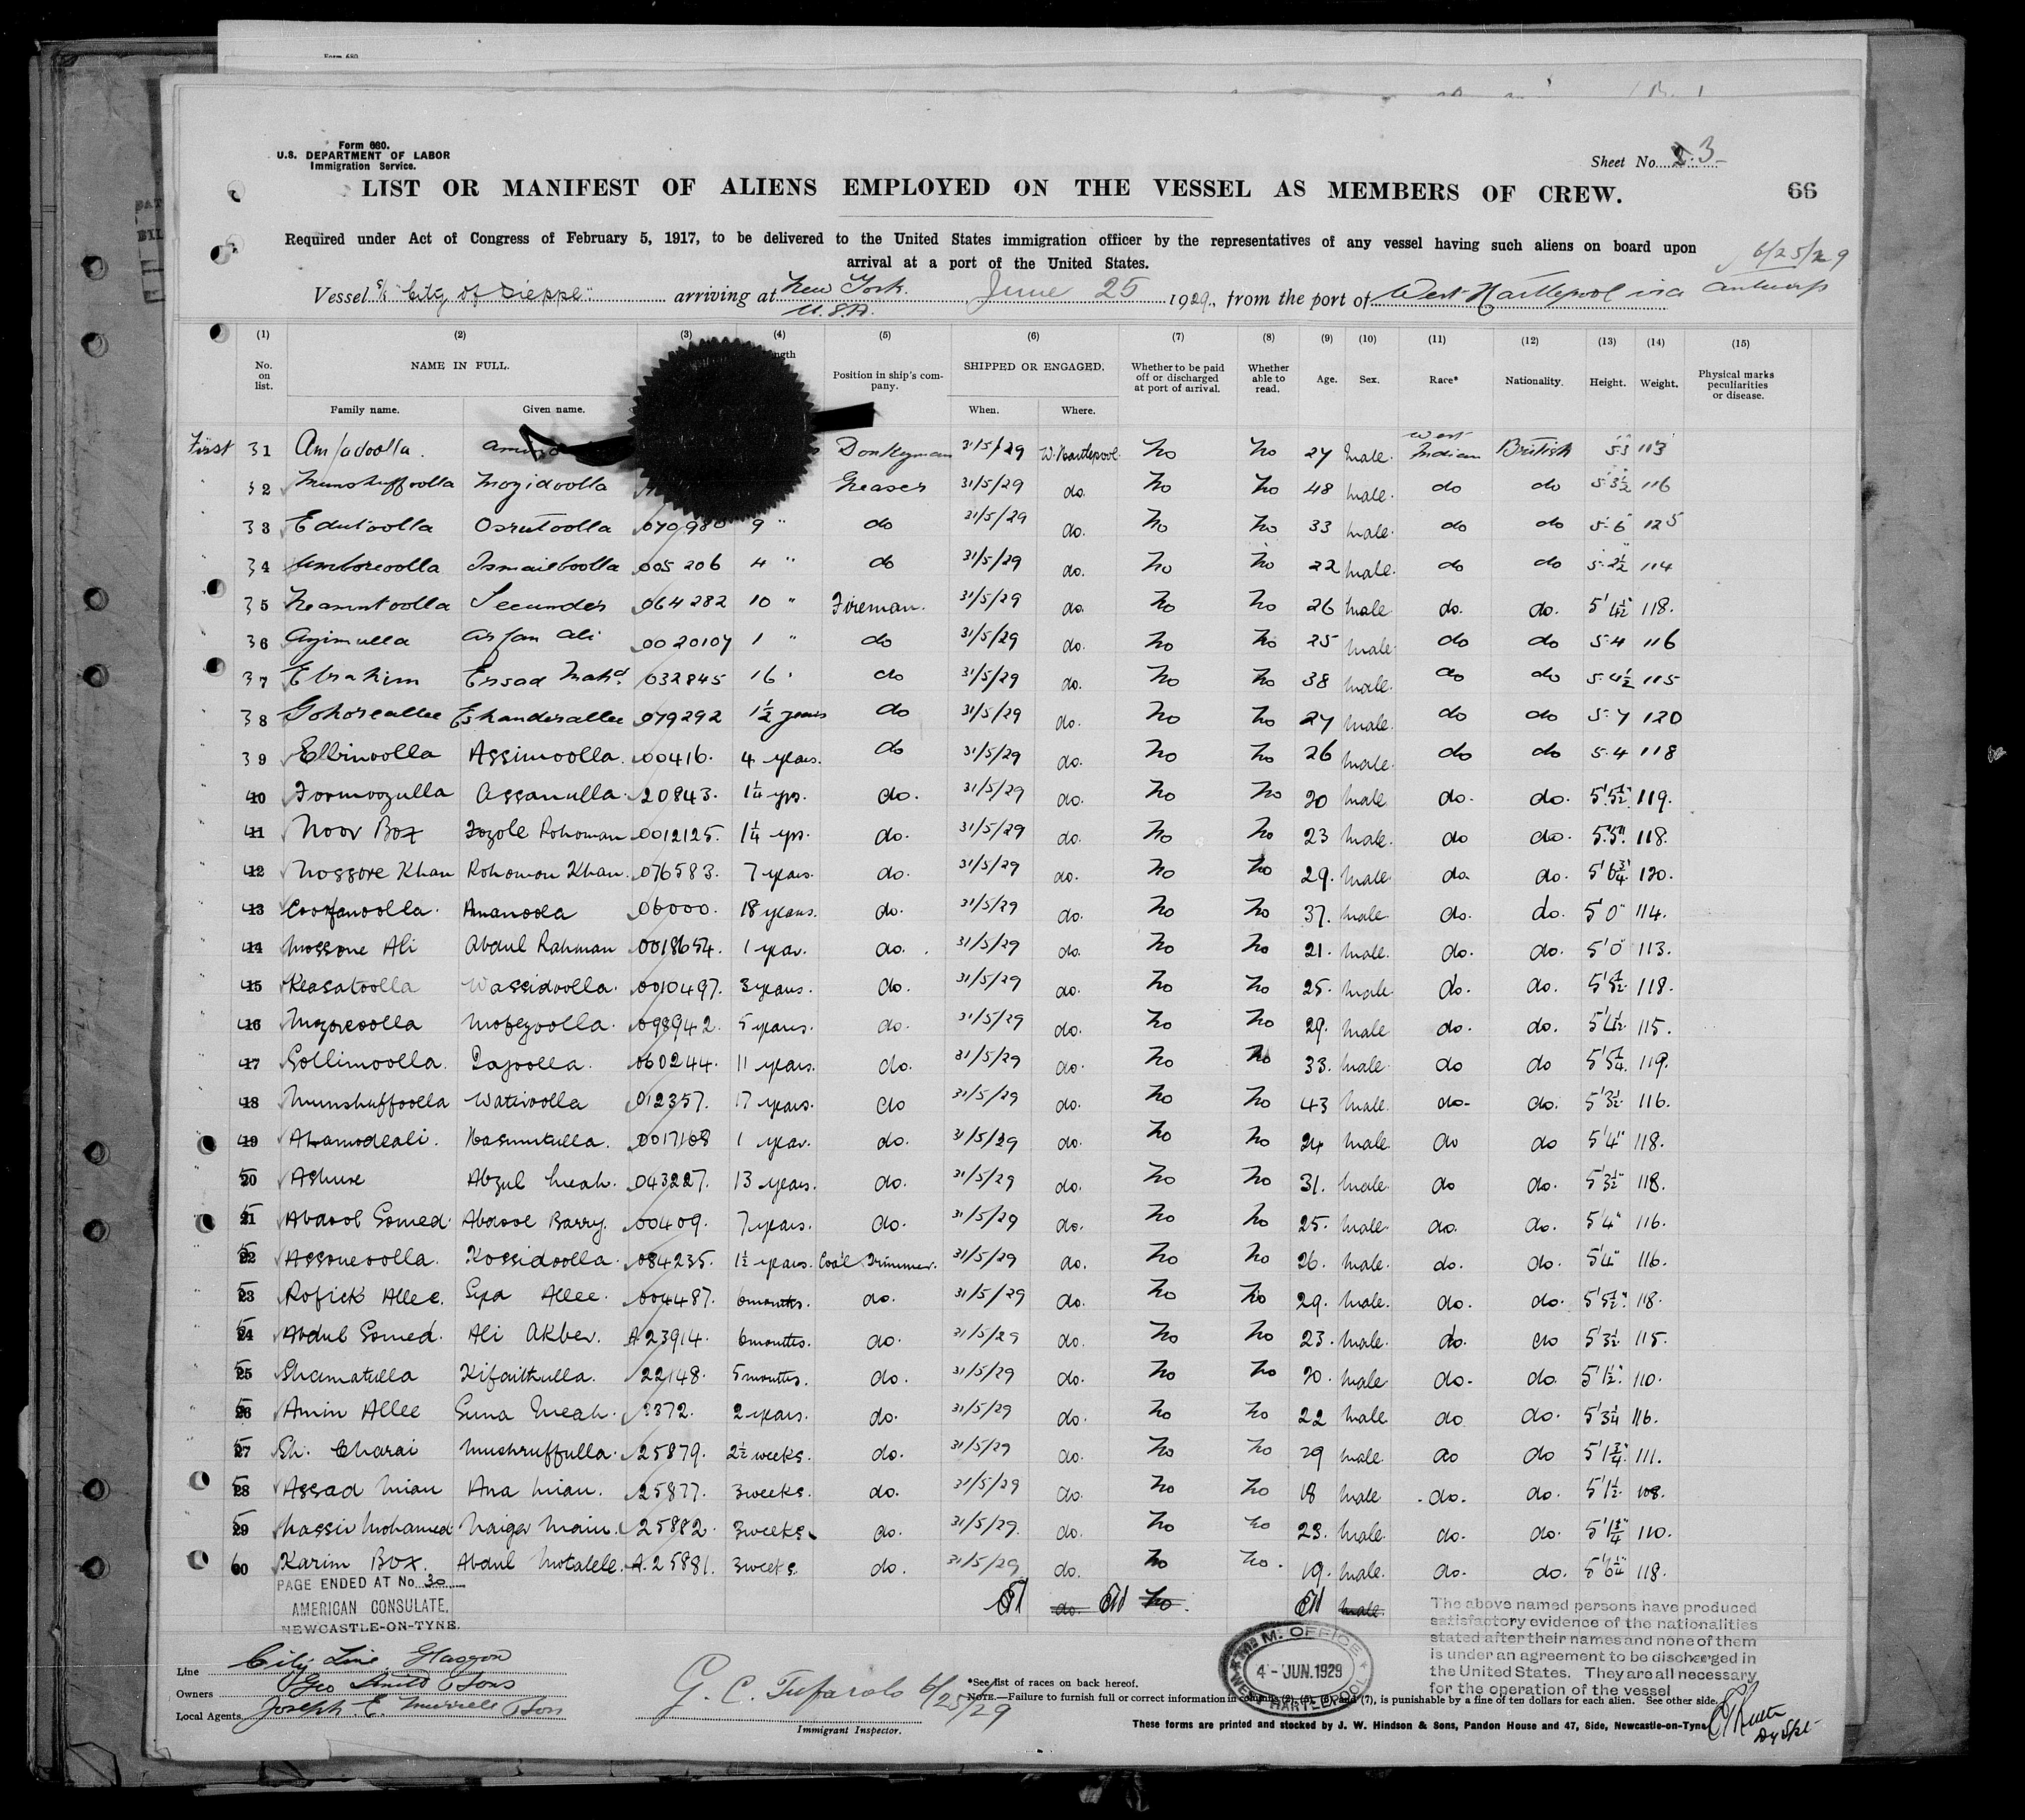 Form 680.
U.S. DEPARTMENT OF LABOR
Immigration Service.
Sheet No. 3
LIST OR MANIFEST OF ALIENS EMPLOYED ON THE VESSEL AS MEMBERS OF CREW.
66
Required under Act of Congress of February 5, 1917, to be delivered to the United States immigration officer by the representatives of any vessel having such aliens on board upon
arrival at a port of the United States.
6/25/29
Vessel S/S "City of Dieppe" arriving at New York. U.S.A. June 25 1929, from the port of West Hartlepool via Antwerp
(1) (2) (3) (4) (5) (6) (7) (8) (9) (10) (11) (12) (13) (14) (15)
No. on list. NAME IN FULL. Position in ship's company. SHIPPED OR ENGAGED. Whether to be paid off or discharged at port of arrival. Whether able to read. Age. Sex. Race* Nationality. Height. Weight. Physical marks peculiarities or disease.
Family name. Given name. When. Where.
First 31 Donkeyman 31/5/29 W. Hartlepool No No 27 Male. West Indian British 5 3 113
32 Munshuffoolla Mozidoolla Greaser 31/5/29 do. No No 48 Male. do do 5·3½ 116
33 Edutoolla Osrutoolla 070980 9 " do 31/5/29 do. No No 33 Male. do do 5·6 125
34 Umboreoolla Ismailoolla 005206 4 " do 31/5/29 do. No No 22 Male. do do 5·2½ 114
35 Secunder 064282 10 " Fireman. 31/5/29 do. No No 26 Male do. do. 5'4½" 118.
36 Azimulla Arfan Ali 0020107 1 " do 31/5/29 do. No No 25 Male do do 5·4 116
37 Ebrahim Ersad Mahd. 032845 16 " do 31/5/29 do. No No 38 Male. do do 5·4½ 115
38 Gohoreallee Eshanderallee 079292 1½ years do 31/5/29 do. No No 27 Male. do do 5·7 120
39 Elbinoolla Assimoolla. 00416. 4 years. do 31/5/29 do. No No 26 Male. do do 5·4 118
40 Formoozulla Assanulla. 20843. 1¼ yrs. do. 31/5/29 do. No No 20 Male do. do. 5'5½" 119.
41 Noor Box Fozole Rohoman 0012125. 1¼ yrs. do. 31/5/29 do. No No 23 Male. do do. 5'5" 118.
42 Nossore Khan Rohoman Khan. 076583. 7 years. do. 31/5/29 do. No No 29. Male do. do. 5'6¾" 120.
43 Amanoola 06000. 18 years. do. 31/5/29 do. No No 37. Male do. do. 5'0" 114.
44 Mossone Ali Abdul Rahman 0018654. 1 year. do. 31/5/29 do. No No 21. Male. do. do. 5'0" 113.
45 Keasatoolla Wassidoolla. 0010497. 3 years. do. 31/5/29 do. No No 25. Male do. do. 5'5½" 118.
46 Mozoreoolla Mofezoolla. 098942. 5 years. do. 31/5/29 do. No No 29. Male do. do. 5'4½" 115.
47 Sollimoolla. 060244. 11 years. do. 31/5/29 do. No No 33. Male. do do 5'5¼" 119.
48 Munshuffoolla Watiroolla 012357. 17 years. do 31/5/29 do. No No 43 Male. do. do. 5'3½" 116.
49 Ahamodeali. Hasumtulla. 0017168 1 year. do. 31/5/29 do. No No 24 Male. do do 5'4" 118.
50 Ashure Abzul Meah. 043227. 13 years. do. 31/5/29 do. No No 31. Male. do do. 5'3½" 118.
51 Abdool Somed. Abdool Barry. 00409. 7 years. do. 31/5/29 do. No No 25. Male. do. do. 5'4" 116.
52 Assoneoolla. Kossidoolla. 084235. 1½ years. Coal Trimmer. 31/5/29 do. No No 26. Male. do. do. 5'4" 116.
53 Rofick Allee. Syd Allee. 004487. 6 months. do. 31/5/29 do. No No 29. Male. do. do. 5'5½" 118.
54 Abdul Somed. Ali Akber. A 23914. 6 months. do. 31/5/29 do. No No 23. Male. do. do 5'3½" 115.
55 Shamatulla Kifaithulla. 22148. 5 months. do. 31/5/29 do. No No 20. Male do. do. 5'1½" 110.
56 Amin Allee Suna Meah. 2372. 2 years. do. 31/5/29 do. No No 22 Male do do. 5'3¼ 116.
57 Sh. Charai Mushruffulla. 25879. 2½ weeks. do. 31/5/29 do. No No 29 Male do do 5'1¾" 111.
58 Assad Mian Ana Mian. 25877. 3 weeks. do. 31/5/29 do. No No 18 Male do. do. 5'1½" 108.
59 Nassir Mohamed Naiger Main. 25882. 3 weeks. do. 31/5/29 do. No No 23. Male. do. do. 5'1¾" 110.
60 Karim Box. Abdul Motalele. A. 25881. 3 weeks. do. 31/5/29 do. No No. 19. Male. do. do. 5'6¼" 118.
PAGE ENDED AT No. 30
AMERICAN CONSULATE,
NEWCASTLE-ON-TYNE.
do. No. Male.
The above named persons have produced
satisfactory evidence of the nationalities
stated after their names and none of them
is under an agreement to be discharged in
the United States. They are all necessary
for the operation of the vessel
M. M. OFFICE
4 - JUN. 1929
WEST HARTLEPOOL
Line City Line Glasgow
Owners Geo Smith & Sons
Local Agents Joseph E. Murrell & Son
G. C. Tufarolo 6/25/29
Immigrant Inspector.
*See list of races on back hereof.
NOTE.—Failure to furnish full or correct information in columns (2), (5), (6), and (7), is punishable by a fine of ten dollars for each alien. See other side.
These forms are printed and stocked by J. W. Hindson & Sons, Pandon House and 47, Side, Newcastle-on-Tyne